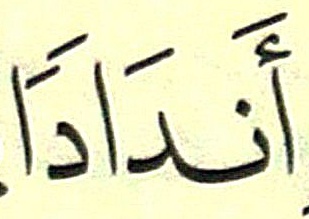 أَندَادًا